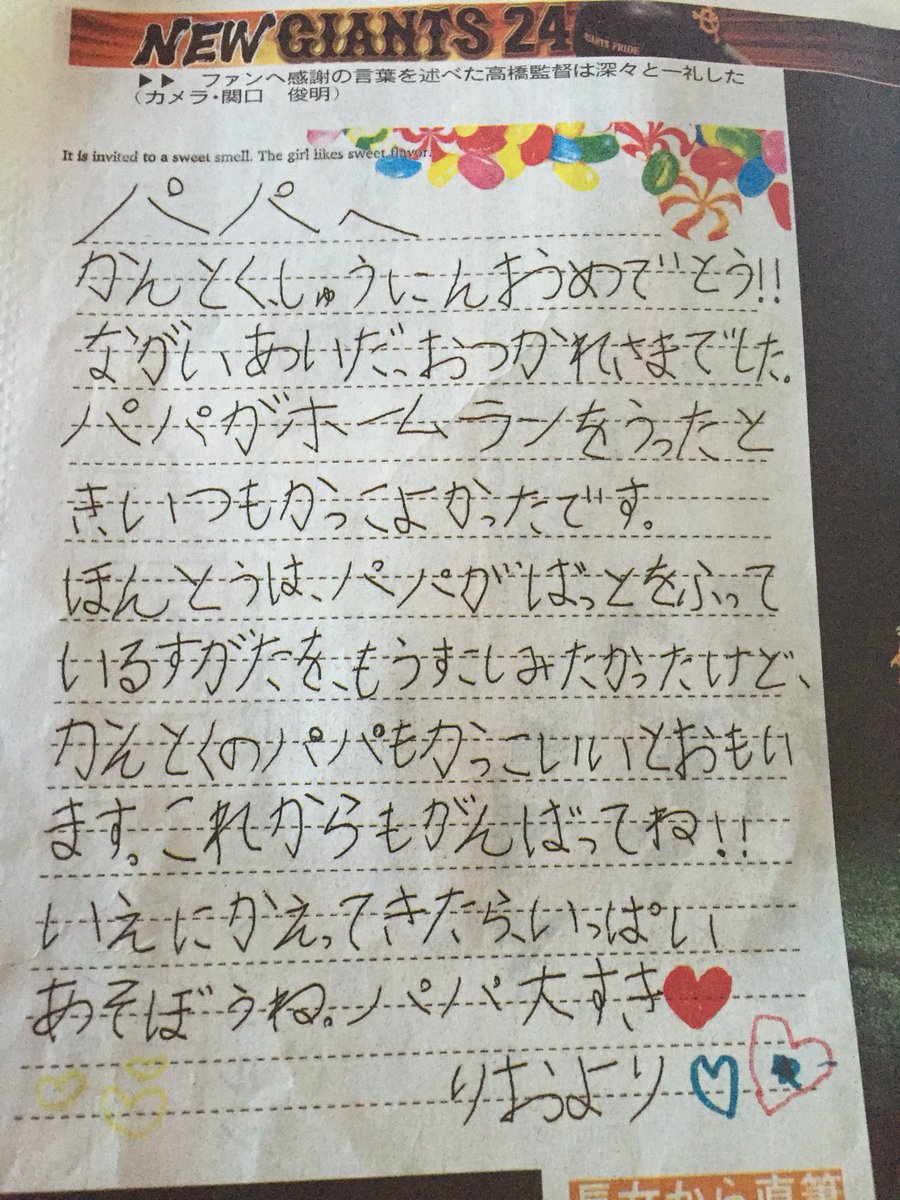 NEW GIANTS 24
GIANTS PRIDE
▶▶ ファンへ感謝の言葉を述べた高橋監督は深々と一礼した
（カメラ・関口 俊明）
It is invited to a sweet smell. The girl likes sweet flavor.
パパへ
かんとく、しゅうにんおうめでとう!!
ながいあついだ、おつかれさまでした。
パパがホームランをうったと
き、いつもかっこよかったです。
ほんとうは、パパがばっとをふって
いるすがたを、もうすこしみたかったけど、
かんとくのパパもかっこいいとおもい
ます。これからもがんばってね!!
いえにかえってきたら、いっぱい
あそぼうね。パパ大すき
りおより
長女から直筆